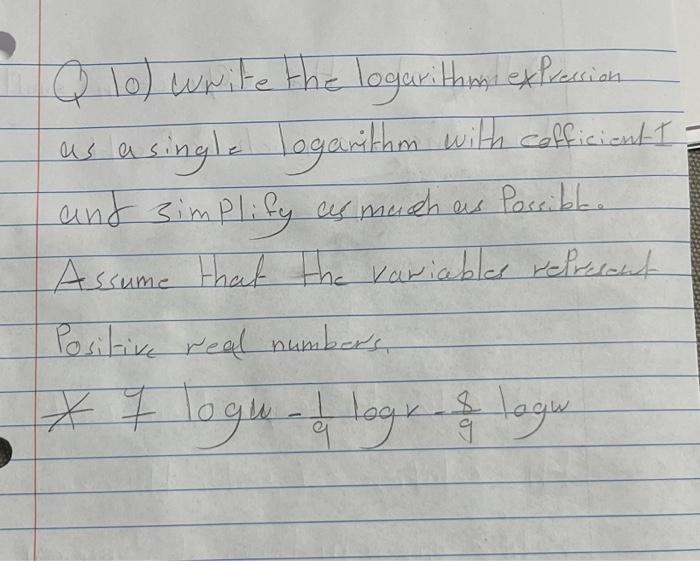 Q 10) write the logarithm expression
as a single logarithm with cofficient 1
and simplify as much as Possible.
Assume that the variables represent
Positive real numbers.
* 7 logu - 1/9 logv - 8/9 logw